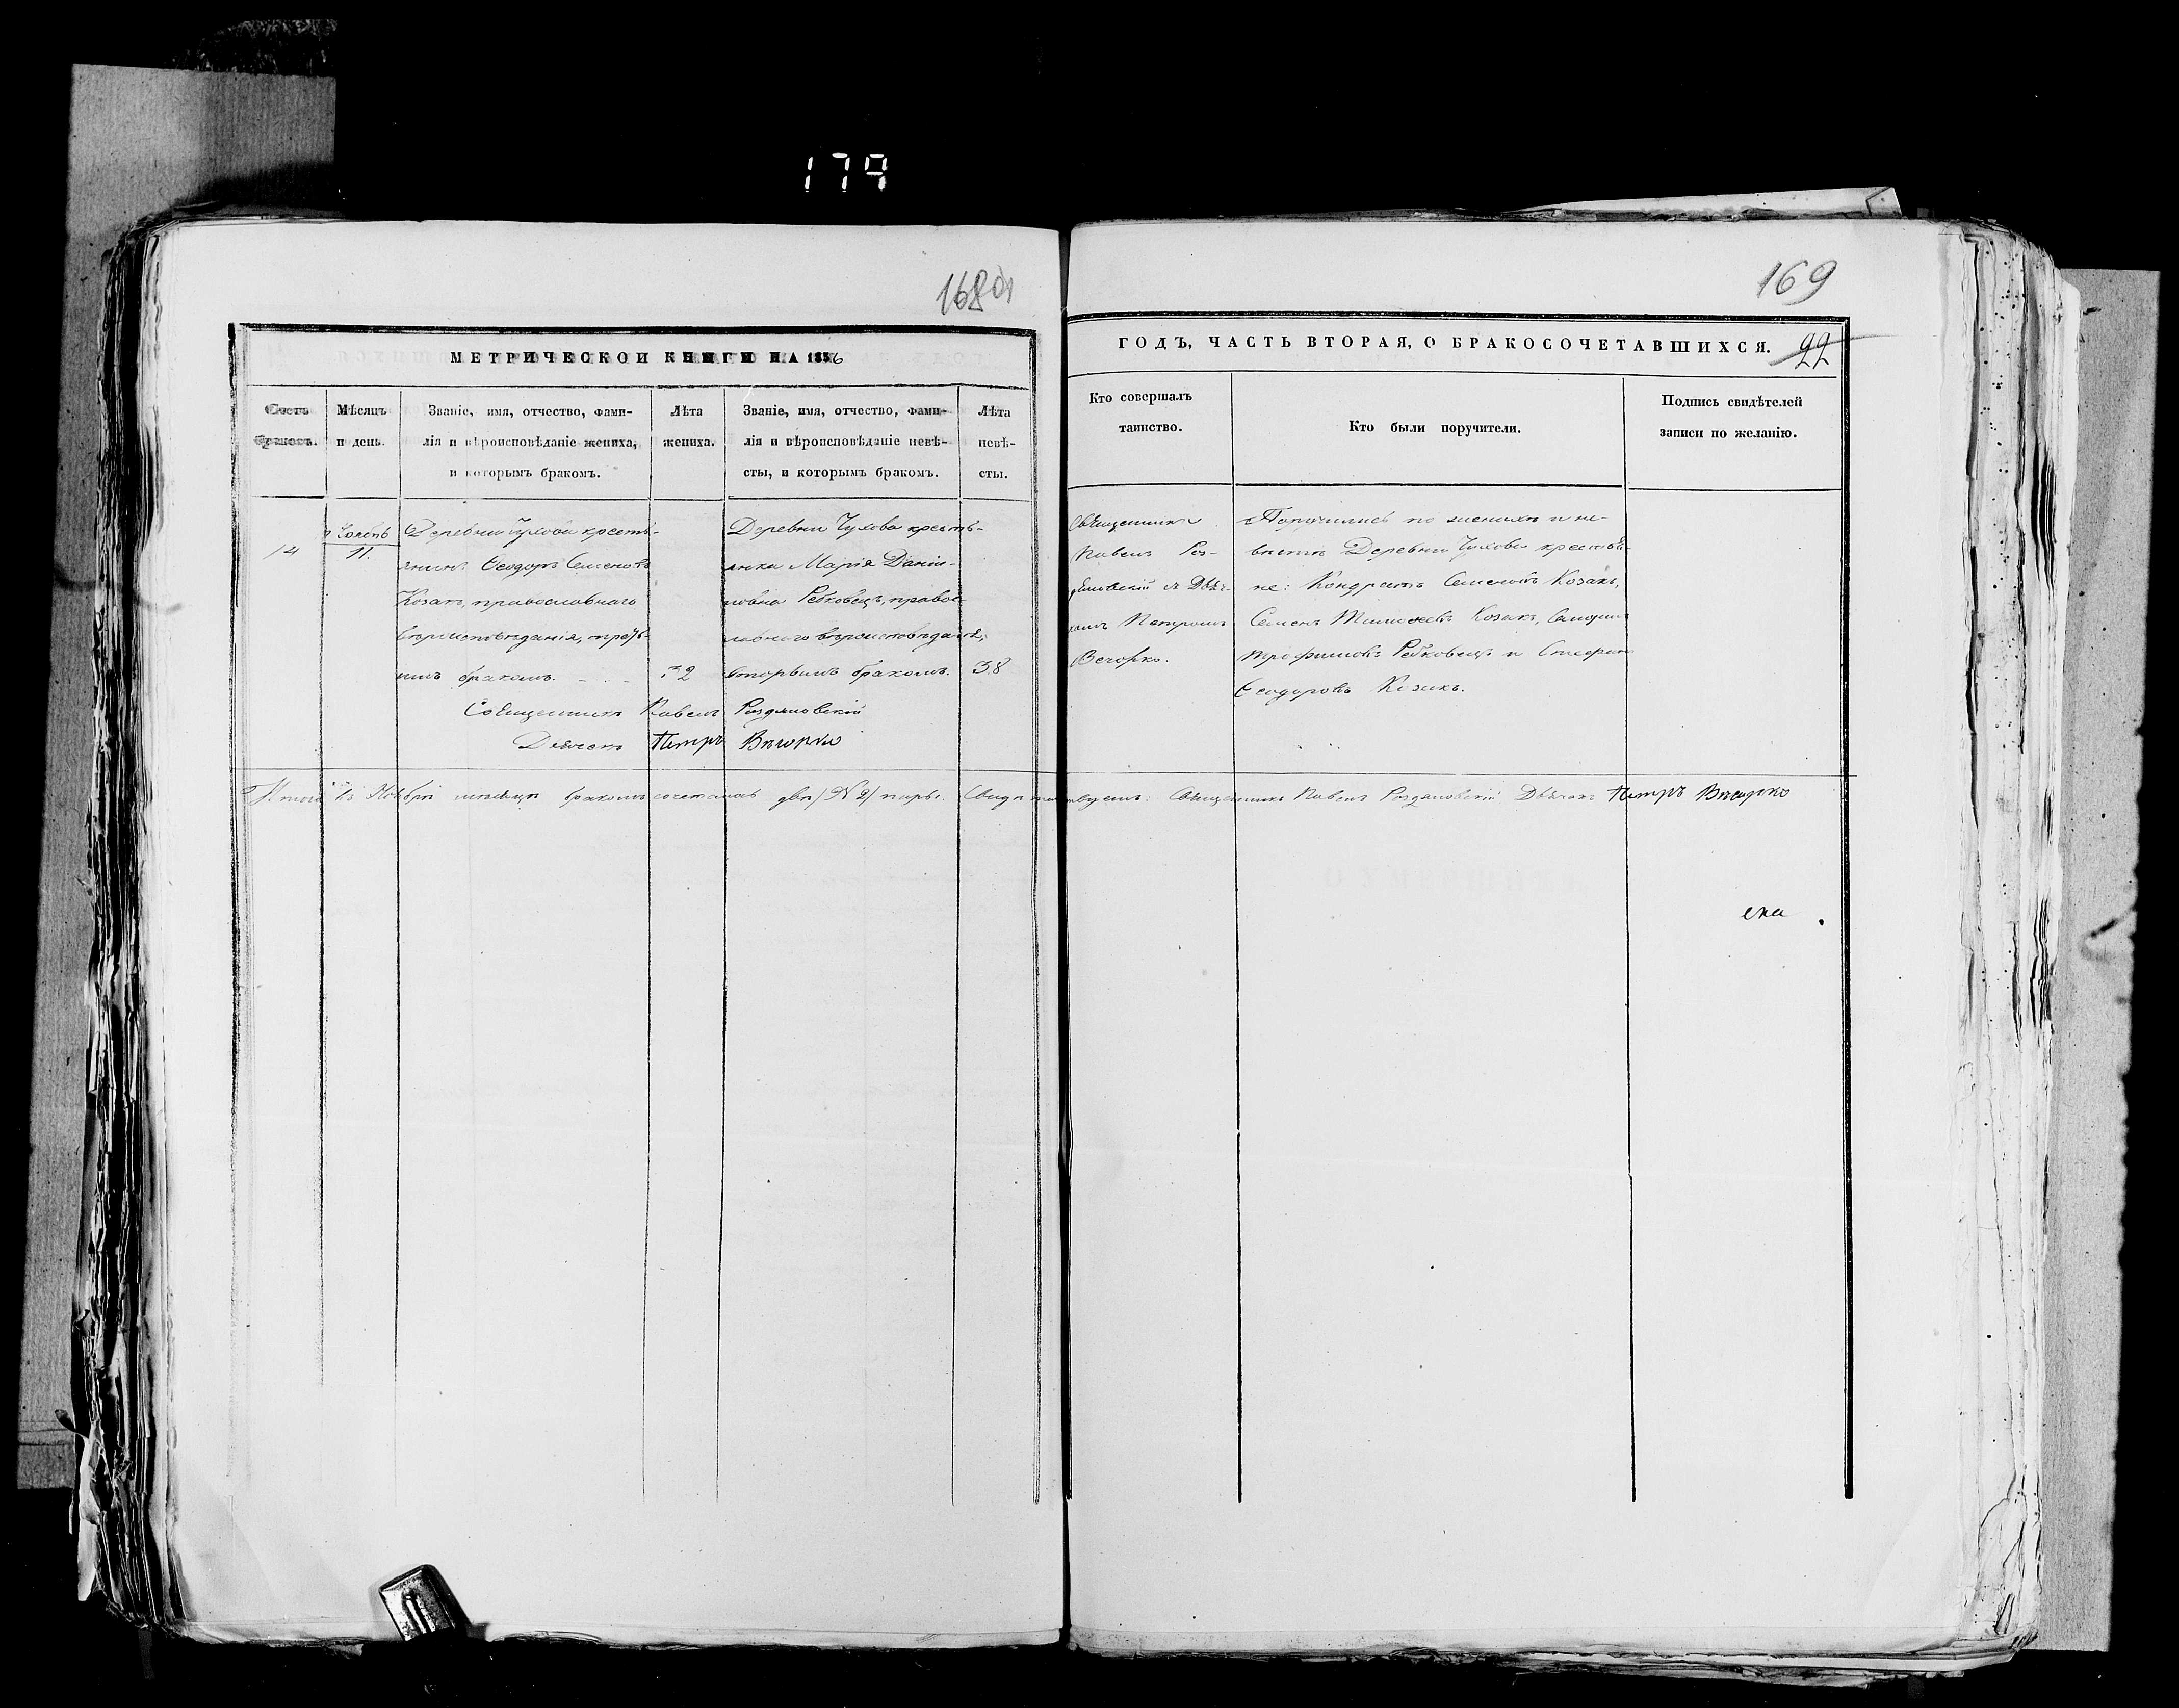 179
169
МЕТРИЧЕСКОЙ КНИГИ НА 1856
ГОДЪ, ЧАСТЬ ВТОРАЯ, О БРАКОСОЧЕТАВШИХСЯ.
22
Счетъ
браковъ.
Мѣсяцъ
и день.
Званіе, имя, отчество, фами-
лія и вѣроисповѣданіе жениха,
и которымъ бракомъ.
Лѣта
жениха.
Званіе, имя, отчество, фами-
лія и вѣроисповѣданіе невѣ-
сты, и которымъ бракомъ.
Лѣта
невѣ-
сты.
Кто совершалъ
таинство.
Кто были поручители.
Подпись свидѣтелей
записи по желанію.
14
11.
Деревни Чухова кресть-
янинъ Ѳеодоръ Семеновъ
Козакъ, православнаго
вѣроисповѣданія,
бракомъ.
32
Деревни Чухова кресть-
янка Марія Даніи-
ловна Редковецъ, правос-
лавнаго вѣроисповѣданія,
вторымъ бракомъ.
38
Священникъ Павелъ Роздяловскій
Дьячекъ Петръ Вечорко
Священникъ
Павелъ Роз-
дяловскій съ Дьяч-
комъ Петромъ
Вечорко.
Поручились по женихѣ и не-
вѣстѣ Деревни Чухова крестья-
не: Кондратъ Семеновъ Козакъ,
Семенъ Тимоѳеевъ Козакъ,
Трофимовъ Редковецъ и Стефанъ
Ѳеодоровъ Козакъ.
Итого въ Ноябрѣ мѣсяцѣ бракомъ сочеталось двѣ /№ 2/ пары. Свидѣтельствуемъ: Священникъ Павелъ Роздяловскій Дьячекъ Петръ Вечорко
ека